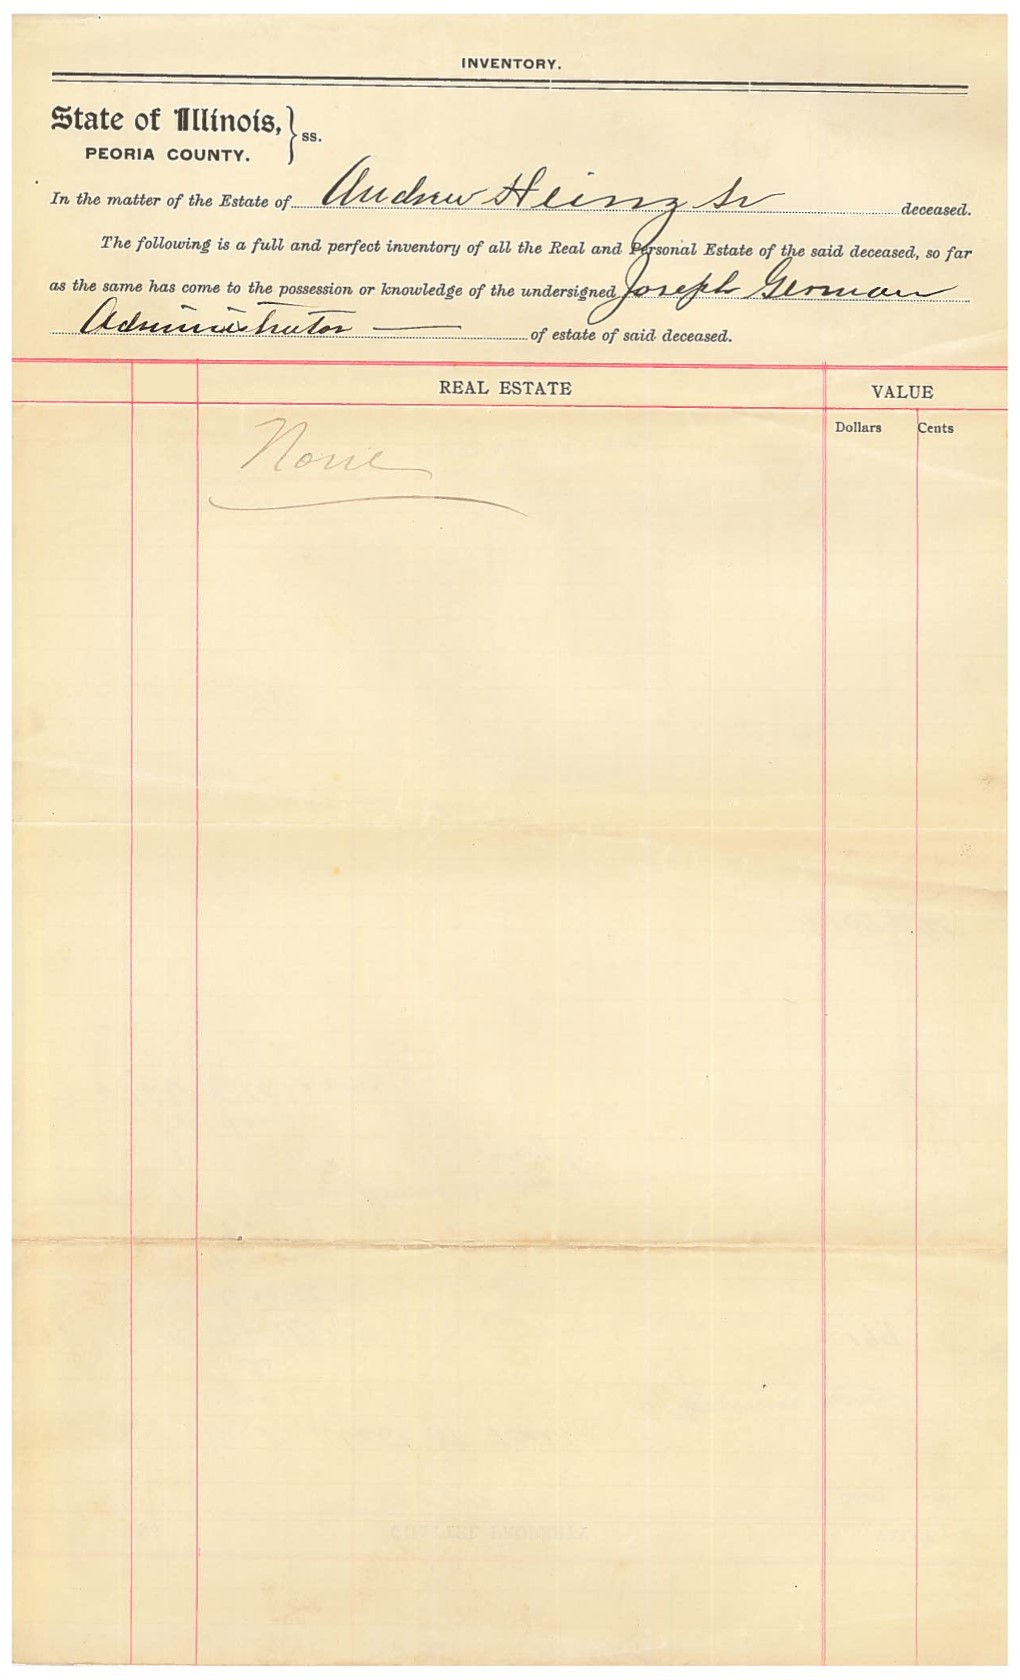 INVENTORY.
State of Illinois,
PEORIA COUNTY. } ss.
In the matter of the Estate of Andrew Heinz Sr deceased.
The following is a full and perfect inventory of all the Real and Personal Estate of the said deceased, so far
as the same has come to the possession or knowledge of the undersigned Joseph German
Administrator of estate of said deceased.
REAL ESTATE VALUE
Dollars Cents
None